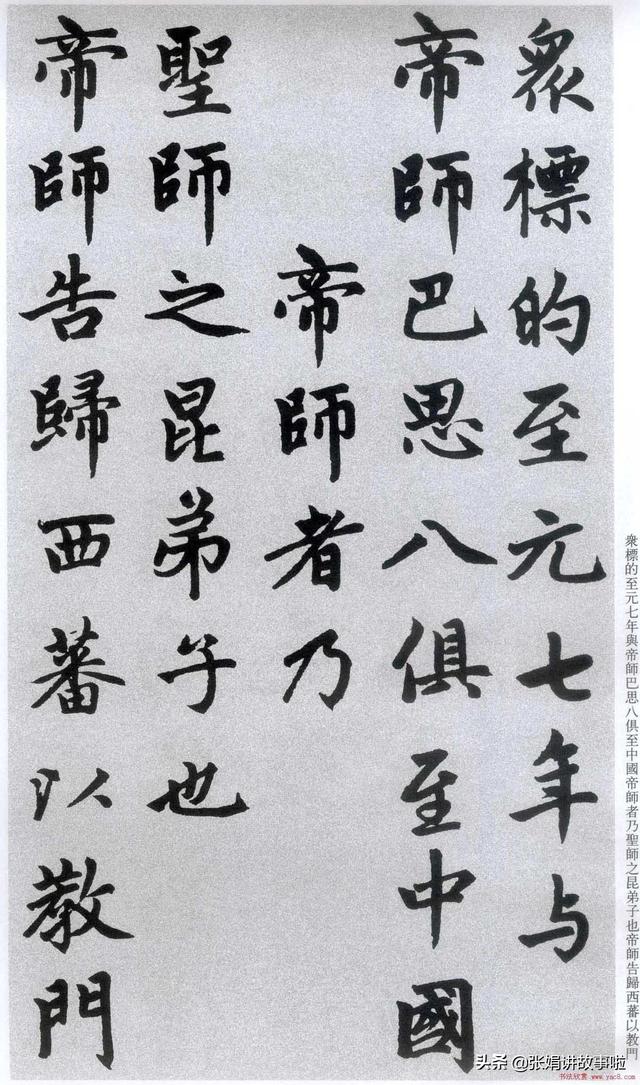 衆標的至元七年与
帝師巴思八俱至中國
帝師者乃
聖師之昆弟子也
帝師告歸西蕃以教門
衆標的至元七年與帝師巴思八俱至中國帝師者乃聖師之昆弟子也帝師告歸西蕃以教門
头条 @张娟讲故事啦
书法欣赏 www.yac8.com